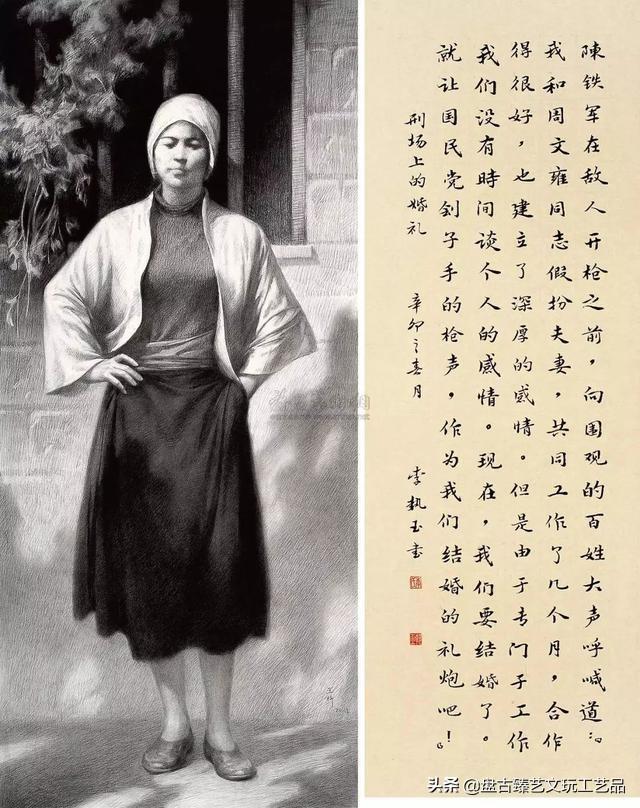 陳铁军在敌人开枪之前，向围观的百姓大声呼喊道：“
我和周文雍同志假扮夫妻，共同工作了几个月，合作
得很好，也建立了深厚的感情。但是由于专门于工作
我们没有時间谈个人的感情。现在，我们要结婚了。
就让国民党刽子手的枪声，作为我们结婚的礼炮吧！”
刑场上的婚礼 辛卯之春月 李執玉书
头条 @盘古臻艺文玩工艺品